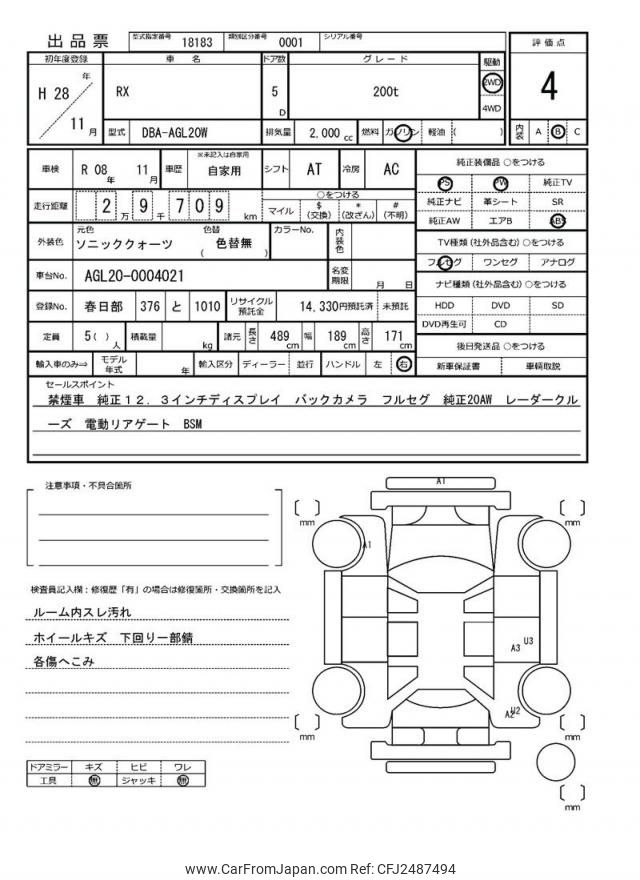 出品票
型式指定番号 18183 類別区分番号 0001 シリアル番号
初年度登録 車名 ドア数 グレード 駆動 評価点
H 28 年 11 月 RX 5 D 200t 2WD 4WD 4
型式 DBA-AGL20W 排気量 2,000 cc 燃料 ガソリン 軽油 ( ) 内装 A B C
車検 R 08 年 11 月 車歴 ※未記入は自家用 自家用 シフト AT 冷房 AC
純正装備品 ○をつける
PS PW 純正TV
純正ナビ 革シート SR
純正AW エアB ABS
走行距離 2 万 9 千 7 0 9 km
○をつける
マイル $ (交換) * (改ざん) # (不明)
外装色 元色 ソニッククォーツ 色替 ( 色替無 ) カラーNo. 内装色
TV種類 (社外品含む) ○をつける
フルセグ ワンセグ アナログ
車台No. AGL20-0004021 名変期限 月 日
ナビ種類 (社外品含む) ○をつける
HDD DVD SD
DVD再生可 CD
登録No. 春日部 376 と 1010 リサイクル預託金 14,330円預託済 未預託
定員 5 ( ) 人 積載量 kg 諸元 長さ 489 cm 幅 189 cm 高さ 171 cm
後日発送品 ○をつける
新車保証書 車輌取説
輸入車のみ⇒ モデル年式 年 輸入区分 ディーラー 並行 ハンドル 左 右
セールスポイント
禁煙車 純正12.3インチディスプレイ バックカメラ フルセグ 純正20AW レーダークル
ーズ 電動リアゲート BSM
注意事項・不具合箇所
検査員記入欄:修復歴「有」の場合は修復箇所・交換箇所を記入
ルーム内スレ汚れ
ホイールキズ 下回り一部錆
各傷へこみ
ドアミラー キズ ヒビ ワレ
工具 無 ジャッキ 無
A1
mm
mm
A1
U3
A3
U2
A2
mm
mm
mm
www.CarFromJapan.com Ref: CFJ2487494